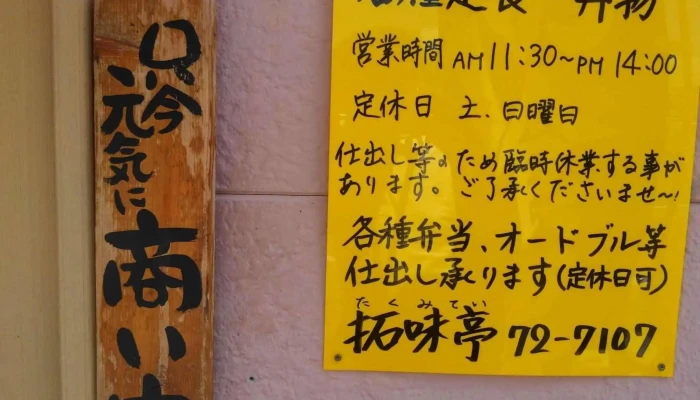 只今、元気に商い中
各種定食 丼物
営業時間 AM11:30~PM14:00
定休日 土、日曜日
仕出し等のため臨時休業する事が
あります。ご了承くださいませ〜!
各種弁当、オードブル等
仕出し承ります(定休日可)
たくみてい
拓味亭 72-7107